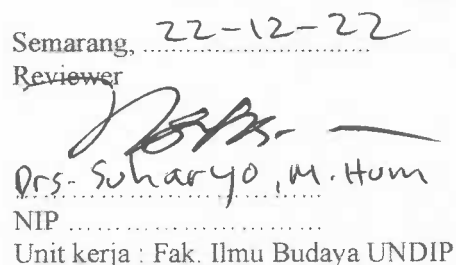 Semarang, 22-12-22
Reviewer
Drs. Suharyo, M. Hum
NIP ........................
Unit kerja : Fak. Ilmu Budaya UNDIP